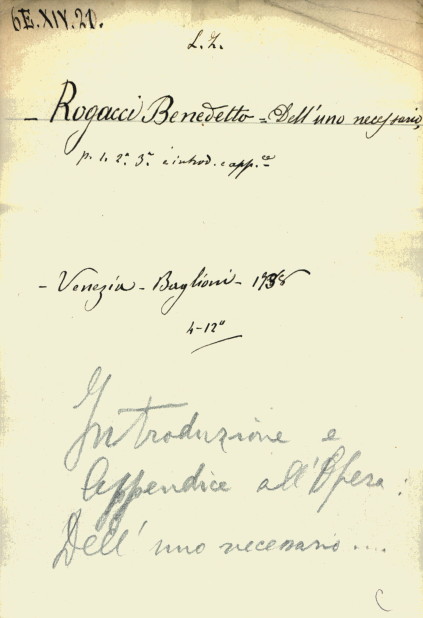 6E.XIV.21.
L. Z.
- Rogacci Benedetto - Dell'uno necessario,
p. 1. 2ª. 3ª. e introd. e app.ce
- Venezia - Baglioni -
4-12º
Introduzione e
Appendice all'Opera:
Dell' uno necessario....
C